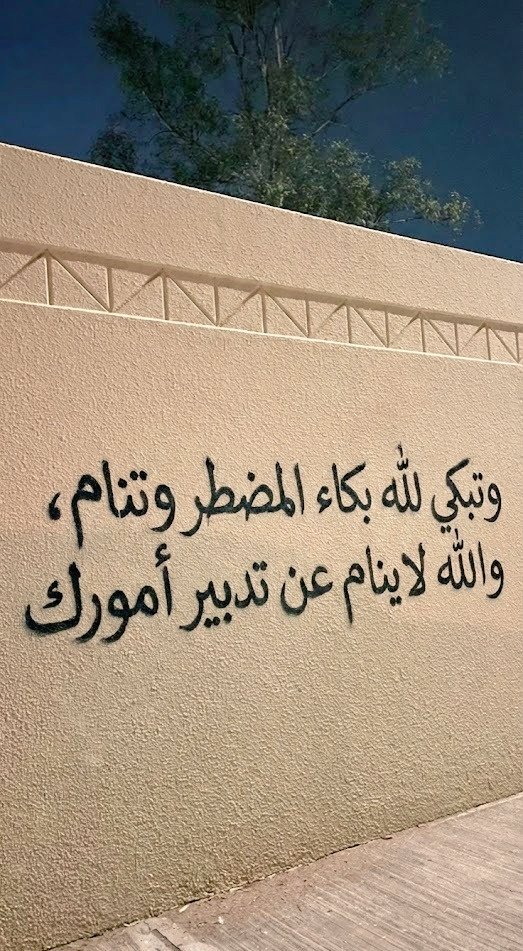 وتبكي لله بكاء المضطر وتنام،
والله لاينام عن تدبير أمورك